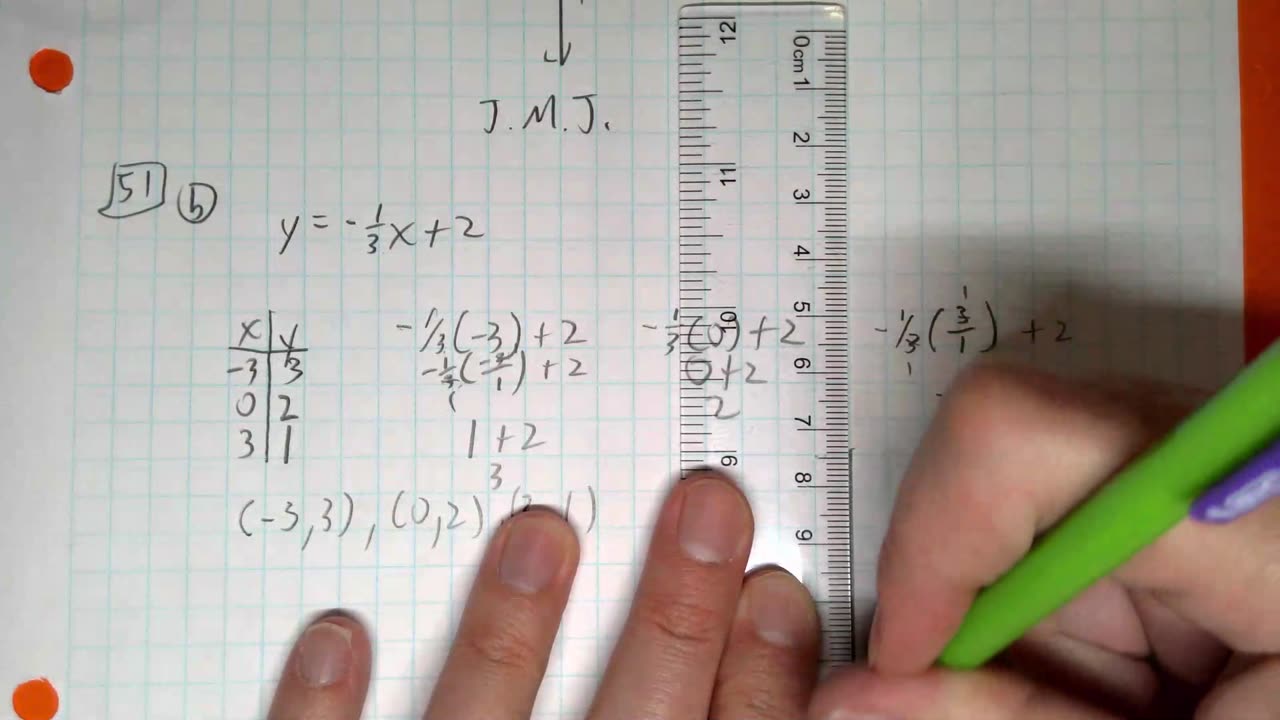 J.M.J.
51 b
y = -1/3x + 2
x y
-3 3
0 2
3 1
-1/3(-3) + 2
-1/3(-3/1) + 2
1 + 2
3
-1/3(0) + 2
0 + 2
2
-1/3(3/1) + 2
(-3,3), (0,2)
12
11
10
9
0cm 1
2
3
4
5
6
7
8
9